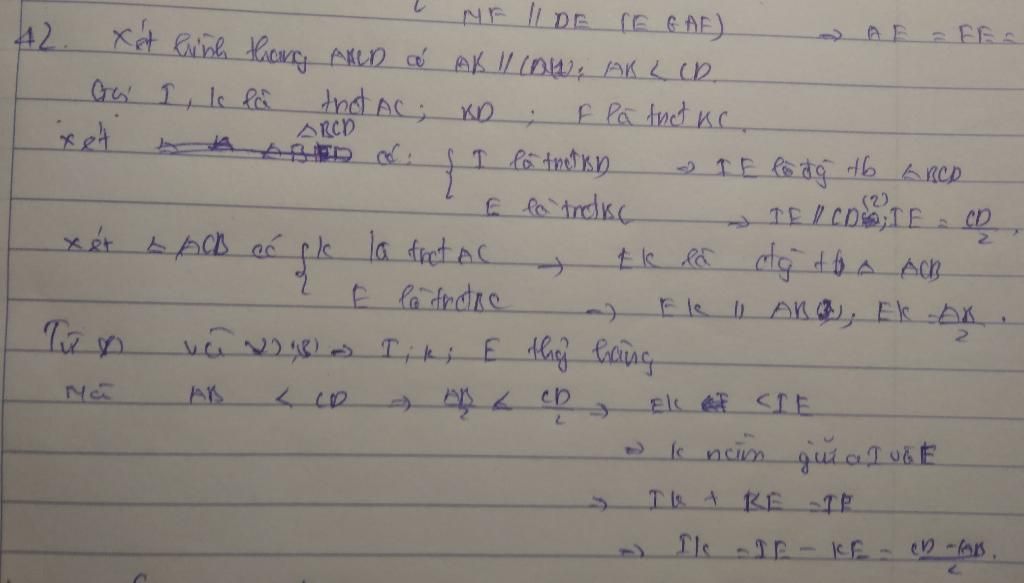 NF // DE (E ∈ AF) → AE = FE =
42. Xét hình thang ABCD có AB // CD (1); AB < CD.
Gọi I, K là trđt AC; BD; E là trđt BC.
Xét ΔBCD có: { I là trđt BD → IE là đg tb ΔBCD
E là trđt BC → IE // CD (2); IE = CD/2.
Xét Δ ACB có { K là trđt AC → EK là đg tb Δ ACB
E là trđt BC → EK // AB (3); EK = AB/2.
Từ (1) và (2); (3) ⇒ I; K; E thg hàng
Mà AB < CD ⇒ AB/2 < CD/2 ⇒ EK < IE
⇒ K nằm giữa I và E
⇒ IK + KE = IE
⇒ IK = IE - KE = CD - AB/2.